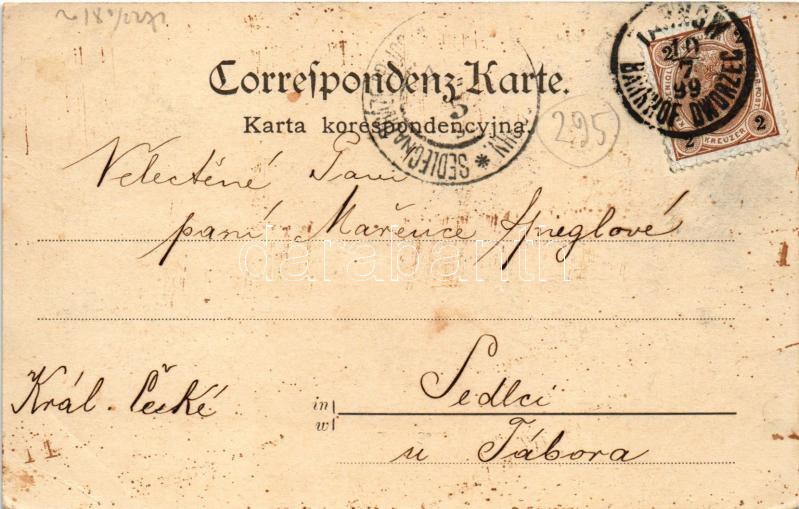 Correspondenz-Karte.
Karta korespondencyjna.
295
10
7
99
BAHNHOF DWORZEC
2 KREUZER 2
5
Velectěné Paní
paní Mařence Špeglové
Král. České
in
w
Sedlci
u Tábora
darabanth